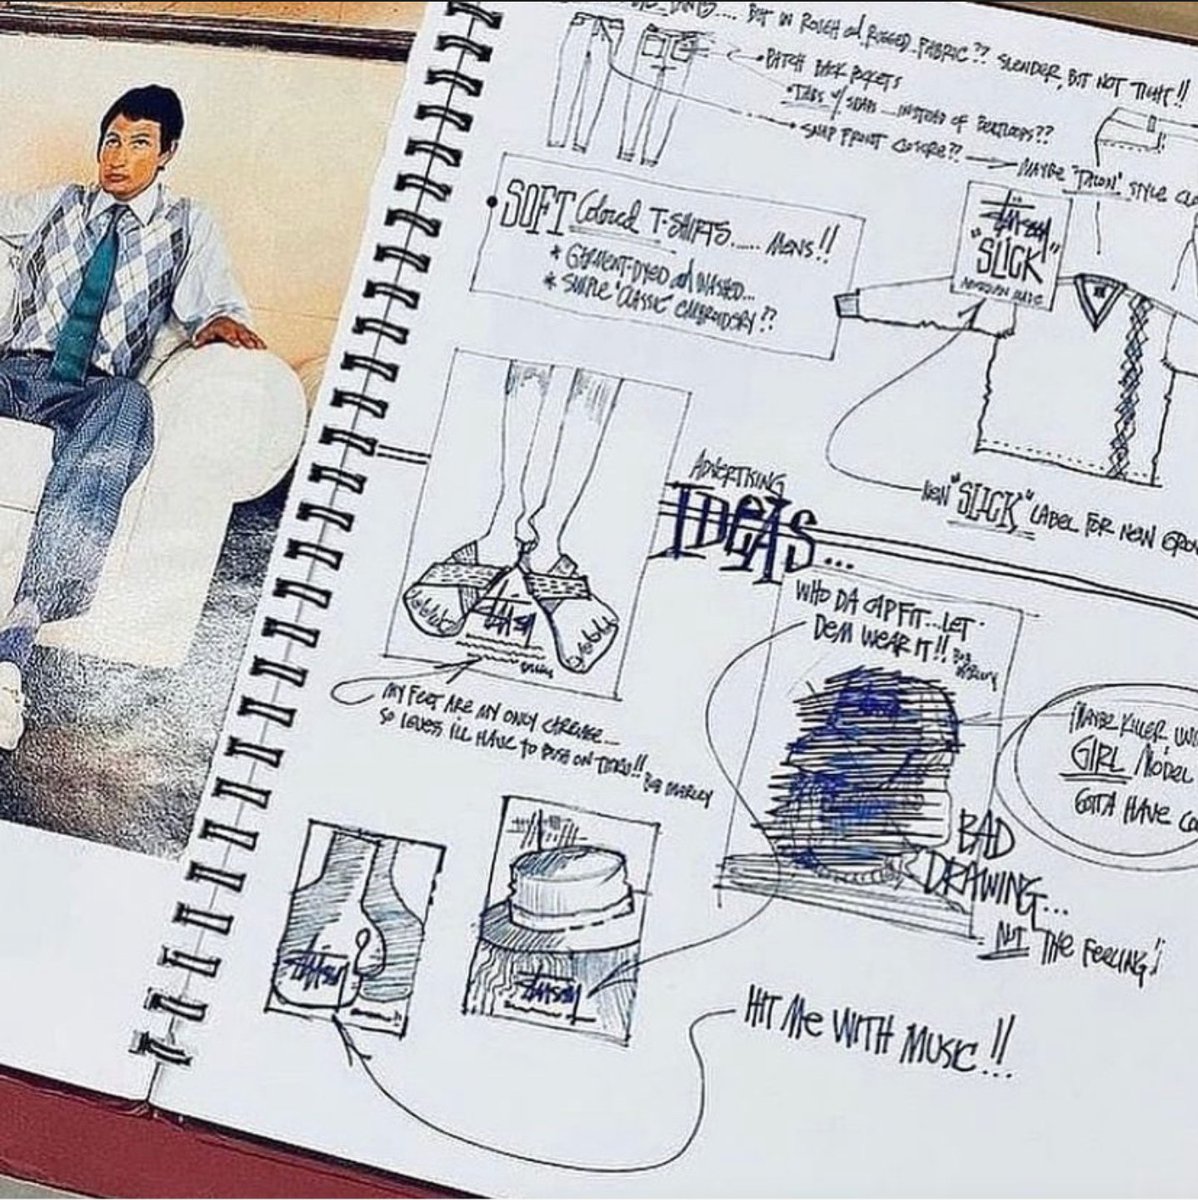 PANTS.... BUT IN ROUGH and RUGGED FABRIC?? SLENDER, BUT NOT TIGHT!!
PATCH BACK POCKETS
*TABS w/ SNAPS... INSTEAD OF BELTLOOPS??
SNAP FRONT CLOSURE??
MAYBE "TALON" STYLE
SOFT Colored T-SHIRTS...... MENS!!
* GARMENT-DYED and WASHED...
* SIMPLE "CLASSIC" EMBROIDERY??
Stüssy
"SLICK"
NEW "SLICK" LABEL FOR NEW
ADVERTISING
IDEAS...
Stüssy
MY FEET ARE MY ONLY CARRIAGE...
SO I'LL HAVE TO PUSH ON THRU!! BOB MARLEY
WHO DA CAP FIT...LET
DEM WEAR IT!! BOB
MARLEY
MAYBE KILLER
GIRL MODEL
GOTTA HAVE
BAD
DRAWING...
NOT THE FEELING!
Stüssy
Stüssy
HIT ME WITH MUSIC!!